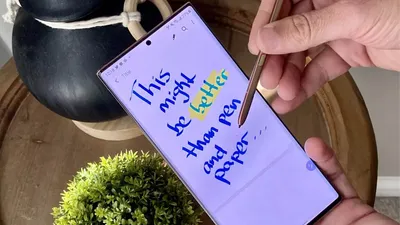 This
might
be better
than pen
and
paper...